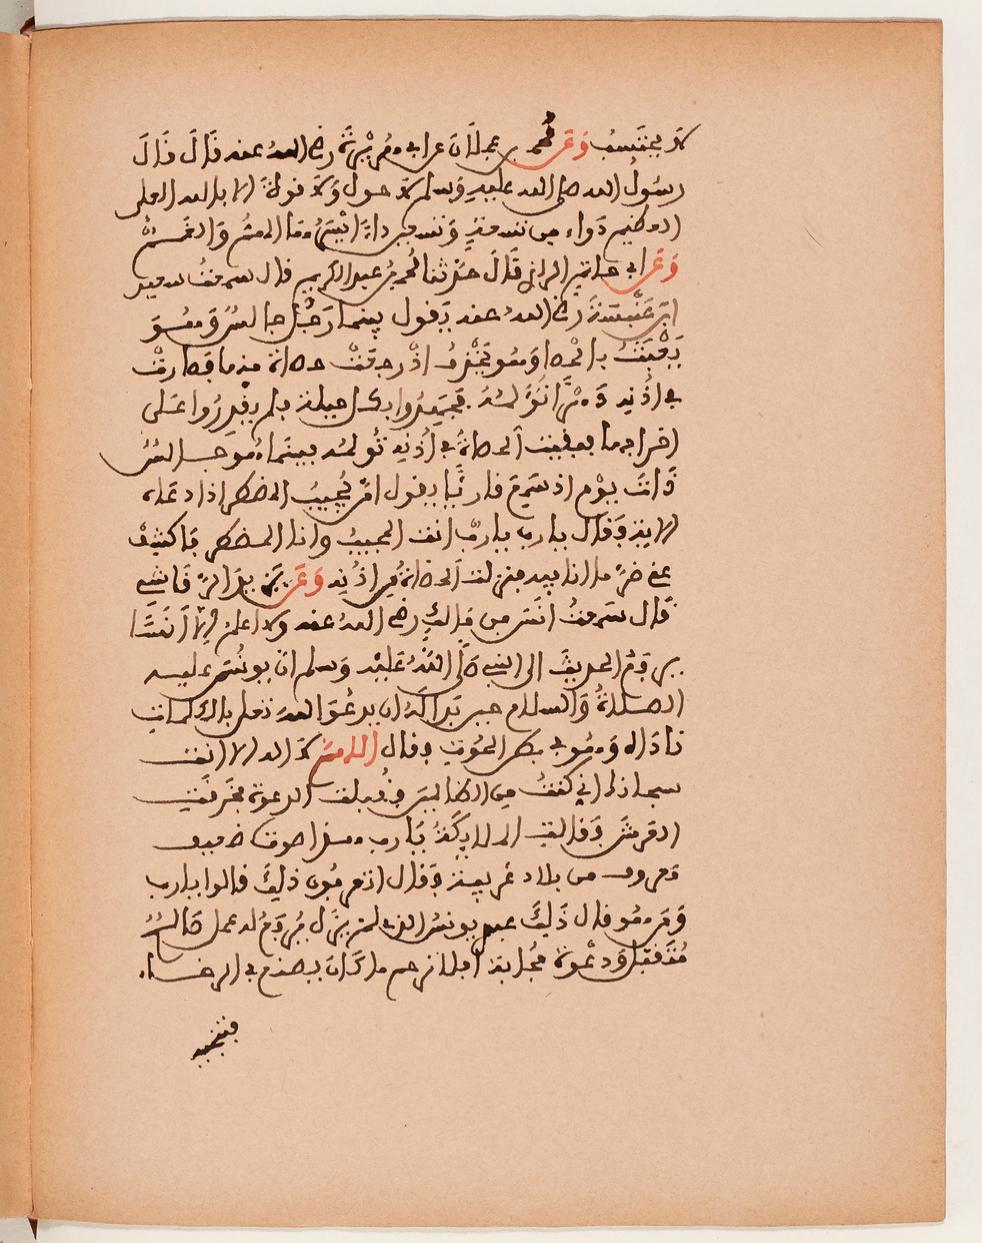 لا يحتسب وعن محمد بن عجلان عن ابي هريرة رضي الله عنه قال قال
رسول الله صلى الله عليه وسلم لا حول ولا قوة الا بالله العلي
العظيم دواء من تسعة وتسعين داء ايسرها الهم والغم
وعن ابي حاتم الرازي قال حدثنا محمد بن عبد الكريم قال سمعت سعيد
ابن عنبسة رضي الله عنه يقول بينما رجل جالس وهو
يعبث بالحصا وهو يحذف اذ رجعت حصاة منها فصارت
في اذنه فجهدوا بكل حيلة فلم يقدروا على
اخراجها فبقيت الحصاة في اذنه تؤلمه فبينما هو جالس
ذات يوم اذ سمع قارئا يقول امن يجيب المضطر اذا دعاه
الاية فقال يا رب يا رب انت المجيب وانا المضطر فاكشف
عني ضر ما انا فيه فنزلت الحصاة من اذنه وعن يزيد الرقاشي
قال سمعت انس بن مالك رضي الله عنه ولا اعلم الا ان انسا
يرفع الحديث الى النبي صلى الله عليه وسلم ان يونس عليه
الصلاة والسلام حين بدا له ان يدعو الله تعلى بالكلمات
ناداه وهو في بطن الحوت فقال اللهم لا اله الا انت
سبحانك اني كنت من الظالمين فاقبلت الدعوة نحو
العرش فقالت الملايكة يا رب هذا صوت ضعيف
معروف من بلاد غريبة فقال اتعرفون ذلك قالوا يا رب
ومن هو قال ذلك عبدي يونس الذي لم يزل يرفع له عمل صالح
متقبل ودعوة مجابة افلا ترحم ما كان يصنع في الرخاء
فتنجيه